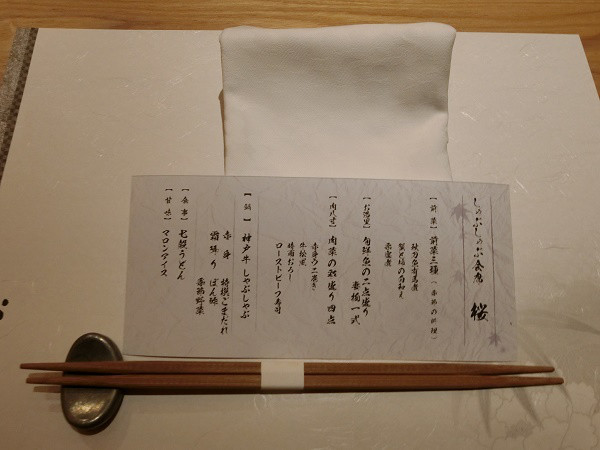 しゃぶしゃぶ会席 桜
【前菜】 前菜三種（季節の料理）
秋刀魚有馬煮
【お造里】 旬鮮魚の二点盛り
妻物一式
【肉八寸】 肉菜の彩盛り四点
牛松風
ローストビーフ寿司
【鍋】 神戸牛 しゃぶしゃぶ
赤身 特撰ごまだれ
霜降り ぽん酢
季節野菜
【食事】 七穀うどん
【甘味】 マロンアイス